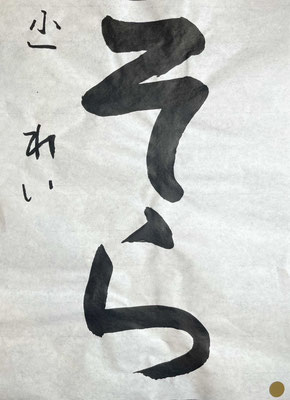 そら
小一 れい